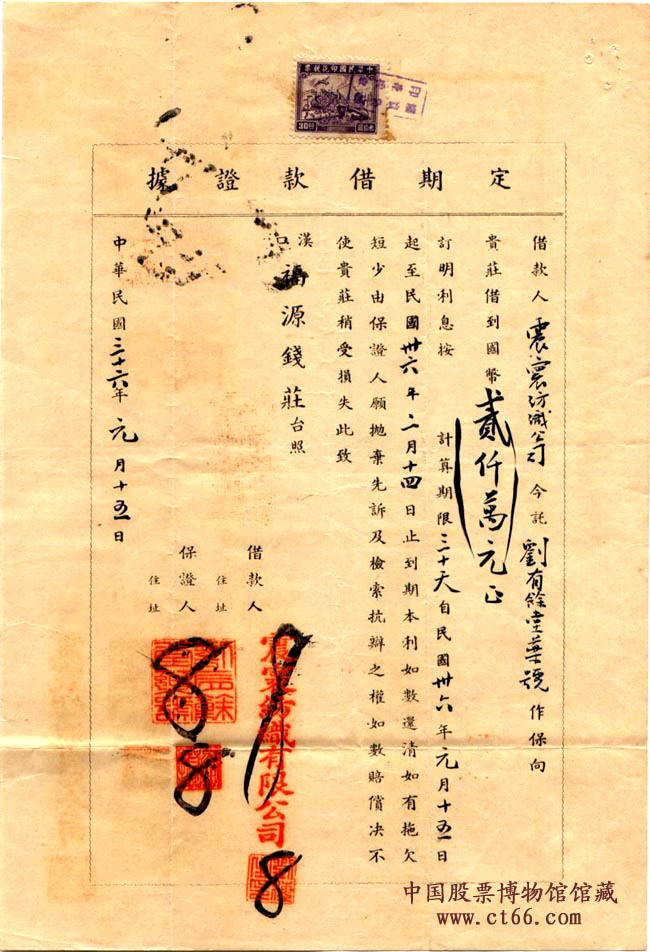 中華民國印花稅票
定期借款證據
借款人震寰紡織公司今託劉有餘堂藥號作保向
貴莊借到國幣貳仟萬元正
訂明利息按 計算期限三十天自民國卅六年元月十五日
起至民國卅六年二月十四日止到期本利如數還清如有拖欠
短少由保證人願拋棄先訴及檢索抗辯之權如數賠償決不
使貴莊稍受損失此致
漢口福源錢莊台照
借款人
住址
震寰紡織有限公司
8
保證人
住址
8
8
中華民國三十六年元月十五日
中国股票博物馆馆藏
www.ct66.com